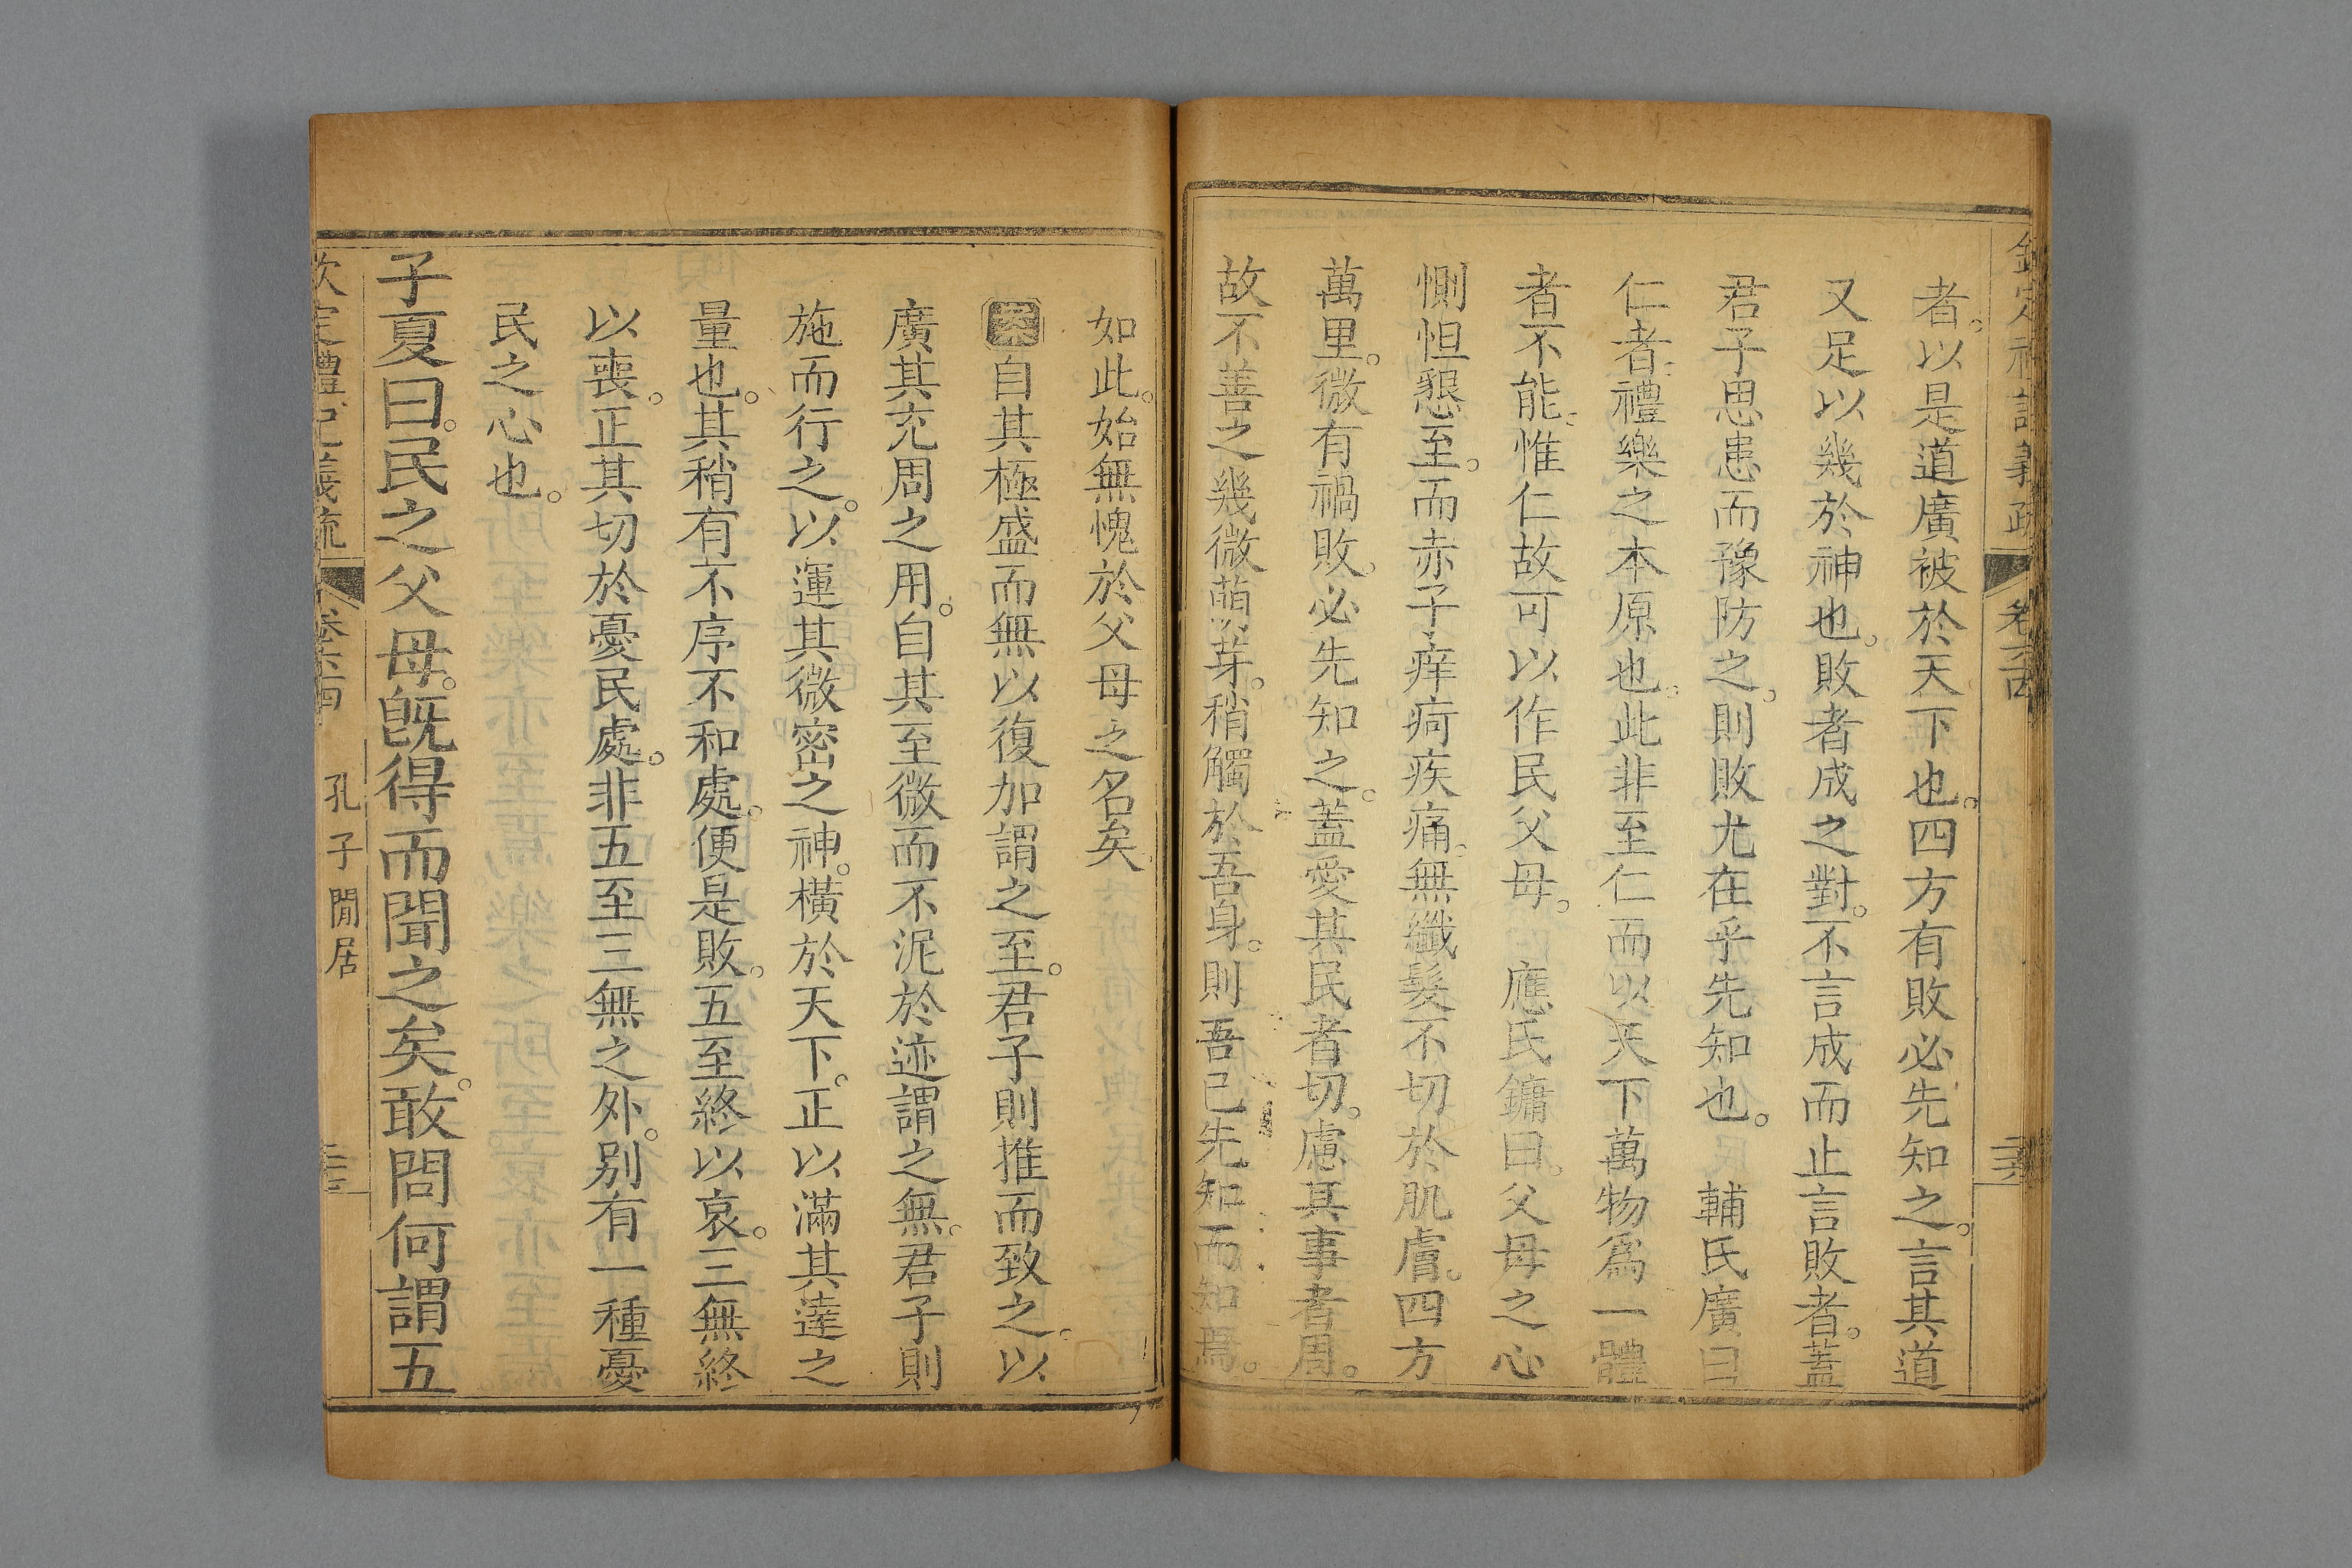 欽定禮記義疏 卷六四
者。以是道廣被於天下也。四方有敗必先知之。言其道
又足以幾於神也。敗者成之對。不言成而止言敗者。蓋
君子思患而豫防之。則敗尤在乎先知也。 輔氏廣曰
仁者。禮樂之本原也。此非至仁而以天下萬物爲一體
者不能。惟仁故可以作民父母。 應氏鏞曰。父母之心
惻怛懇至。而赤子痒疴疾痛。無纖髮不切於肌膚。四方
萬里。微有禍敗。必先知之。蓋愛其民者切。慮其事者周。
故不善之幾微萌芽。稍觸於吾身。則吾已先知而知焉。
如此。始無愧於父母之名矣
案自其極盛而無以復加謂之至。君子則推而致之。以
廣其充周之用。自其至微而不泥於迹謂之無。君子則
施而行之。以運其微密之神。橫於天下。正以滿其達之
量也。其稍有不序不和處。便是敗。五至終以哀。三無終
以喪。正其切於憂民處。非五至三無之外。別有一種憂
民之心也。
子夏曰。民之父母。旣得而聞之矣。敢問何謂五
欽定禮記義疏 卷六四 孔子閒居